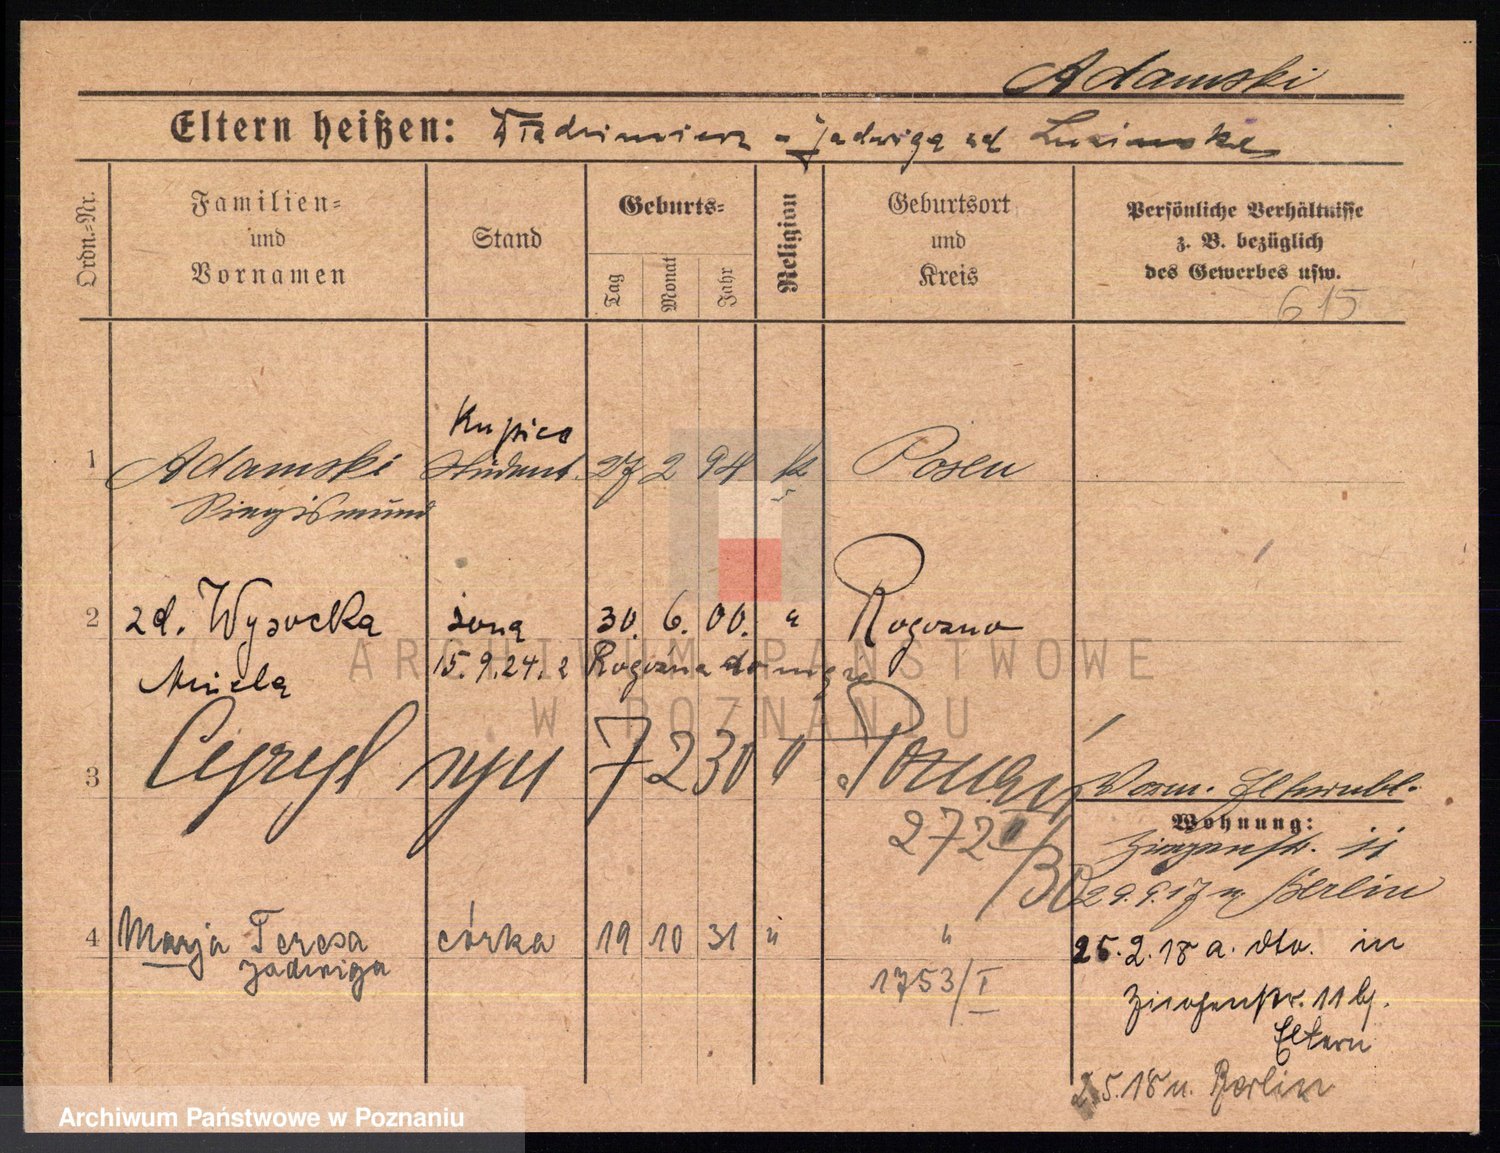 Adamski
Eltern heißen: Władimierz - Jadwiga ud
Ordn.-Nr.
Familien- und Vornamen
Stand
Geburts-
Tag
Monat
Jahr
Religion
Geburtsort und Kreis
Persönliche Verhältnisse
z. B. bezüglich
des Gewerbes usw.
615
Kupiec
1 Adamski Student. 27 2 94 k Posen
Siegismund
2 zd. Wysocka żona 30. 6. 00. " Rogoźno
15.9.24. z Rogoźna do
Aniela
3 Cyryl syn 7 2 30 " Poznań
272 I/30
Vorm. Elternbl.
Wohnung:
Ziegenstr. 11
29.9.17 n. Berlin
4 Marja Teresa córka 19 10 31 " "
Jadwiga
1753/I
25.2.18 a. dto. in
Ziegenstr. 11 bj.
Eltern
5.18 n. Berlin
ARCHIWUM PAŃSTWOWE
W POZNANIU
Archiwum Państwowe w Poznaniu